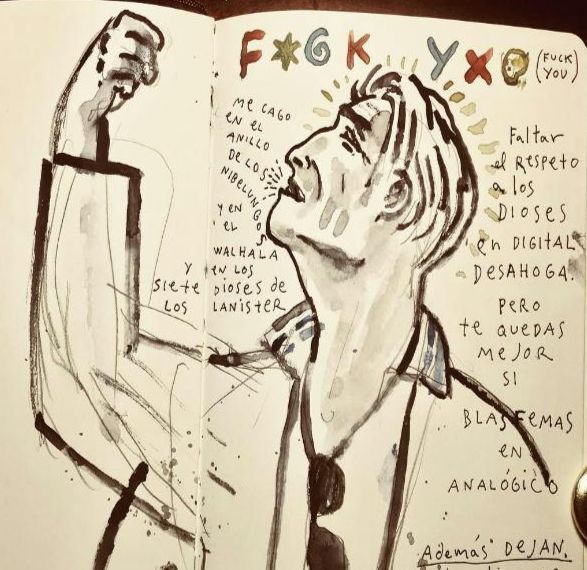 F*GK YX☻ (FUCK
YOU)
ME CAGO
EN EL
ANILLO
DE LOS
NIBELUNGOS
Y EN
EL
WALHALA
Y EN LOS
SIETE DIOSES DE
LOS LANISTER
FALTAR
el RESPETO
a los
DIOSES
en DIGITAL
DESAHOGA.
PERO
te QUEDAS
MEJOR
SI
BLASFEMAS
EN
ANALÓGICO
Además DEJAN.